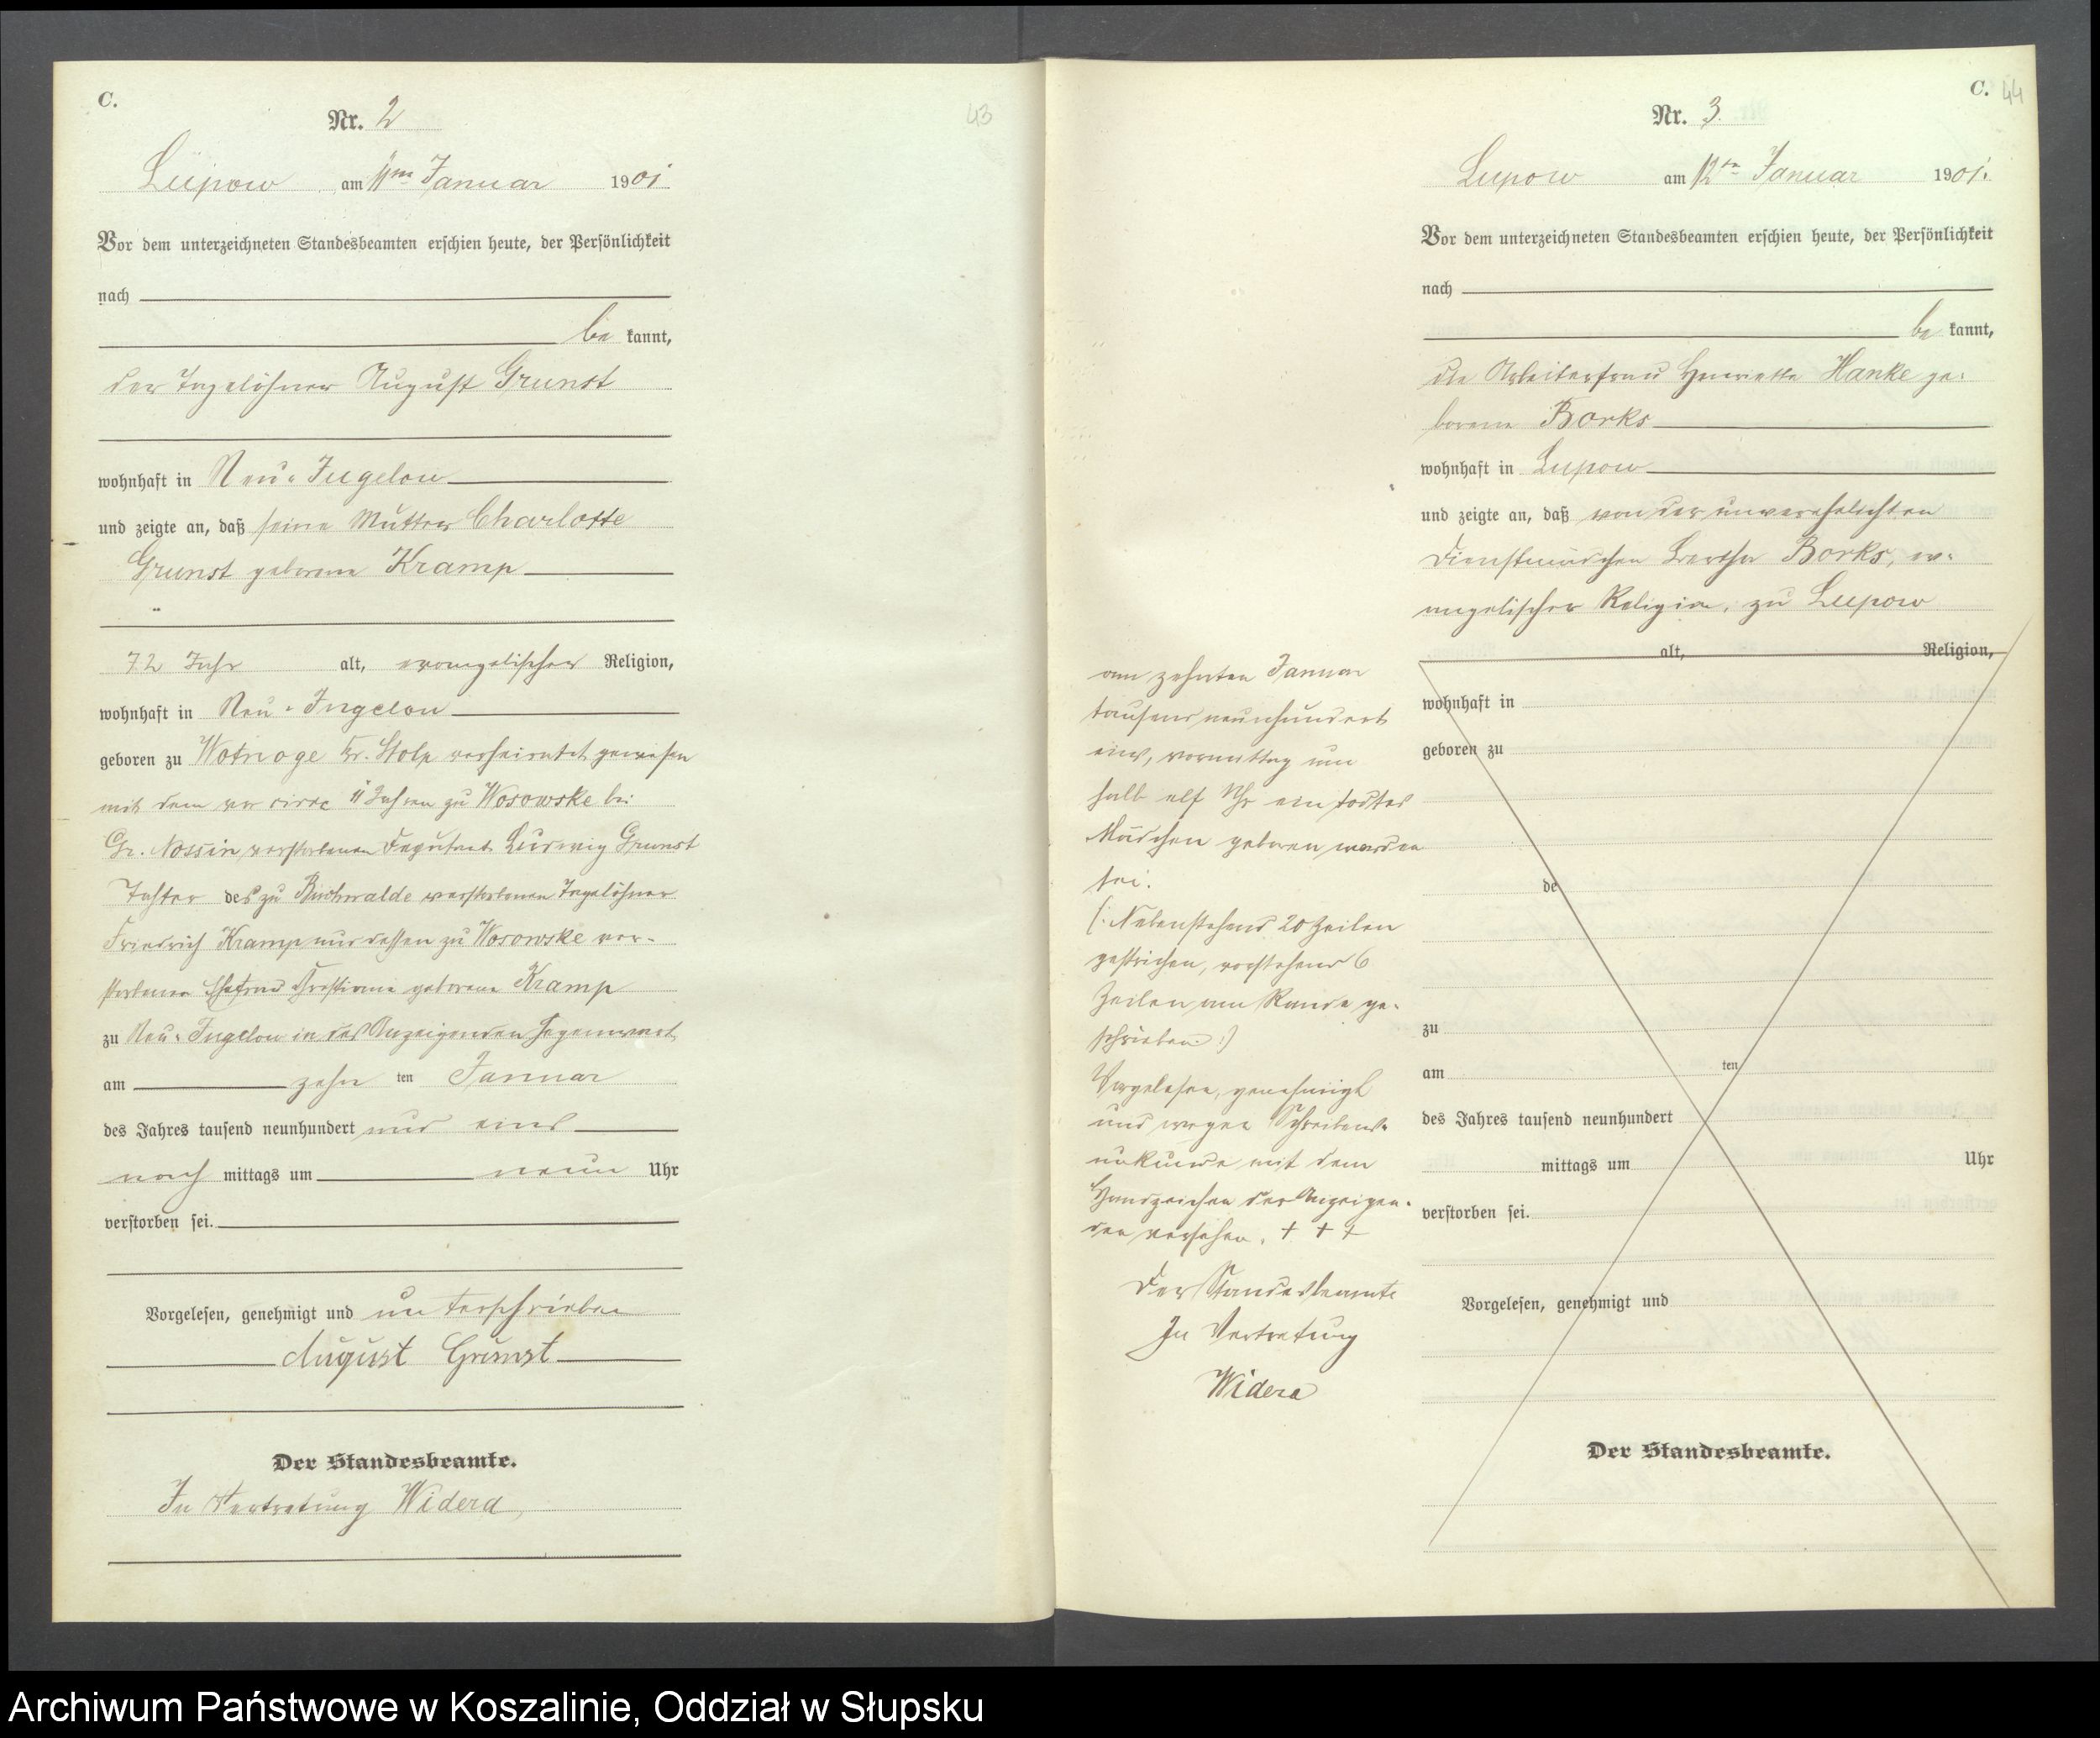 C.
Nr. 2
43
Lupow am 11ten Januar 1901
Vor dem unterzeichneten Standesbeamten erschien heute, der Persönlichkeit
nach
be kannt,
der Tagelöhner August Grunst
wohnhaft in Neu-Jugelow
und zeigte an, daß seine Mutter Charlotte
Grunst geborene Kramp
72 Jahr alt, evangelischer Religion,
wohnhaft in Neu-Jugelow
geboren zu Wotnoge Kr. Stolp verheiratet gewesen
mit dem vor circa 11 Jahren zu Wosowske bei
Gr. Nossin verstorbenen Deputant Ludwig Grunst
Tochter des zu Buchwalde verstorbenen Tagelöhner
Friedrich Kramp und dessen zu Wosowske ver-
storbene Ehefrau geborene Kramp
zu Neu-Jugelow in des Anzeigenden Gegenwart
am zehn ten Januar
des Jahres tausend neunhundert und eins
nach mittags um neun Uhr
verstorben sei.
Vorgelesen, genehmigt und unterschrieben
August Grunst
Der Standesbeamte.
In Vertretung Widera
C. 44
Nr. 3.
Lupow am 12ten Januar 1901.
Vor dem unterzeichneten Standesbeamten erschien heute, der Persönlichkeit
nach
be kannt,
die Arbeiterfrau Henriette Hanke ge-
borene Borks
wohnhaft in Lupow
und zeigte an, daß von der unverehelichten
Dienstmädchen Bertha Borks, ev-
angelischer Religion, zu Lupow
alt, Religion,
wohnhaft in
geboren zu
de
zu
am ten
des Jahres tausend neunhundert
mittags um Uhr
verstorben sei.
Vorgelesen, genehmigt und
Der Standesbeamte.
am zehnten Januar
tausend neunhundert
eins, vormittag um
halb elf Uhr ein todtes
Mädchen geboren worden
sei.
(: Nebenstehend 20 Zeilen
gestrichen, vorstehend 6
Zeilen am Rande ge-
schrieben :)
Vorgelesen, genehmigt
und wegen Schreibens-
unkunde mit dem
Handzeichen der Anzeigen-
den versehen. + + +
Der Standesbeamte
In Vertretung
Widera
Archiwum Państwowe w Koszalinie, Oddział w Słupsku